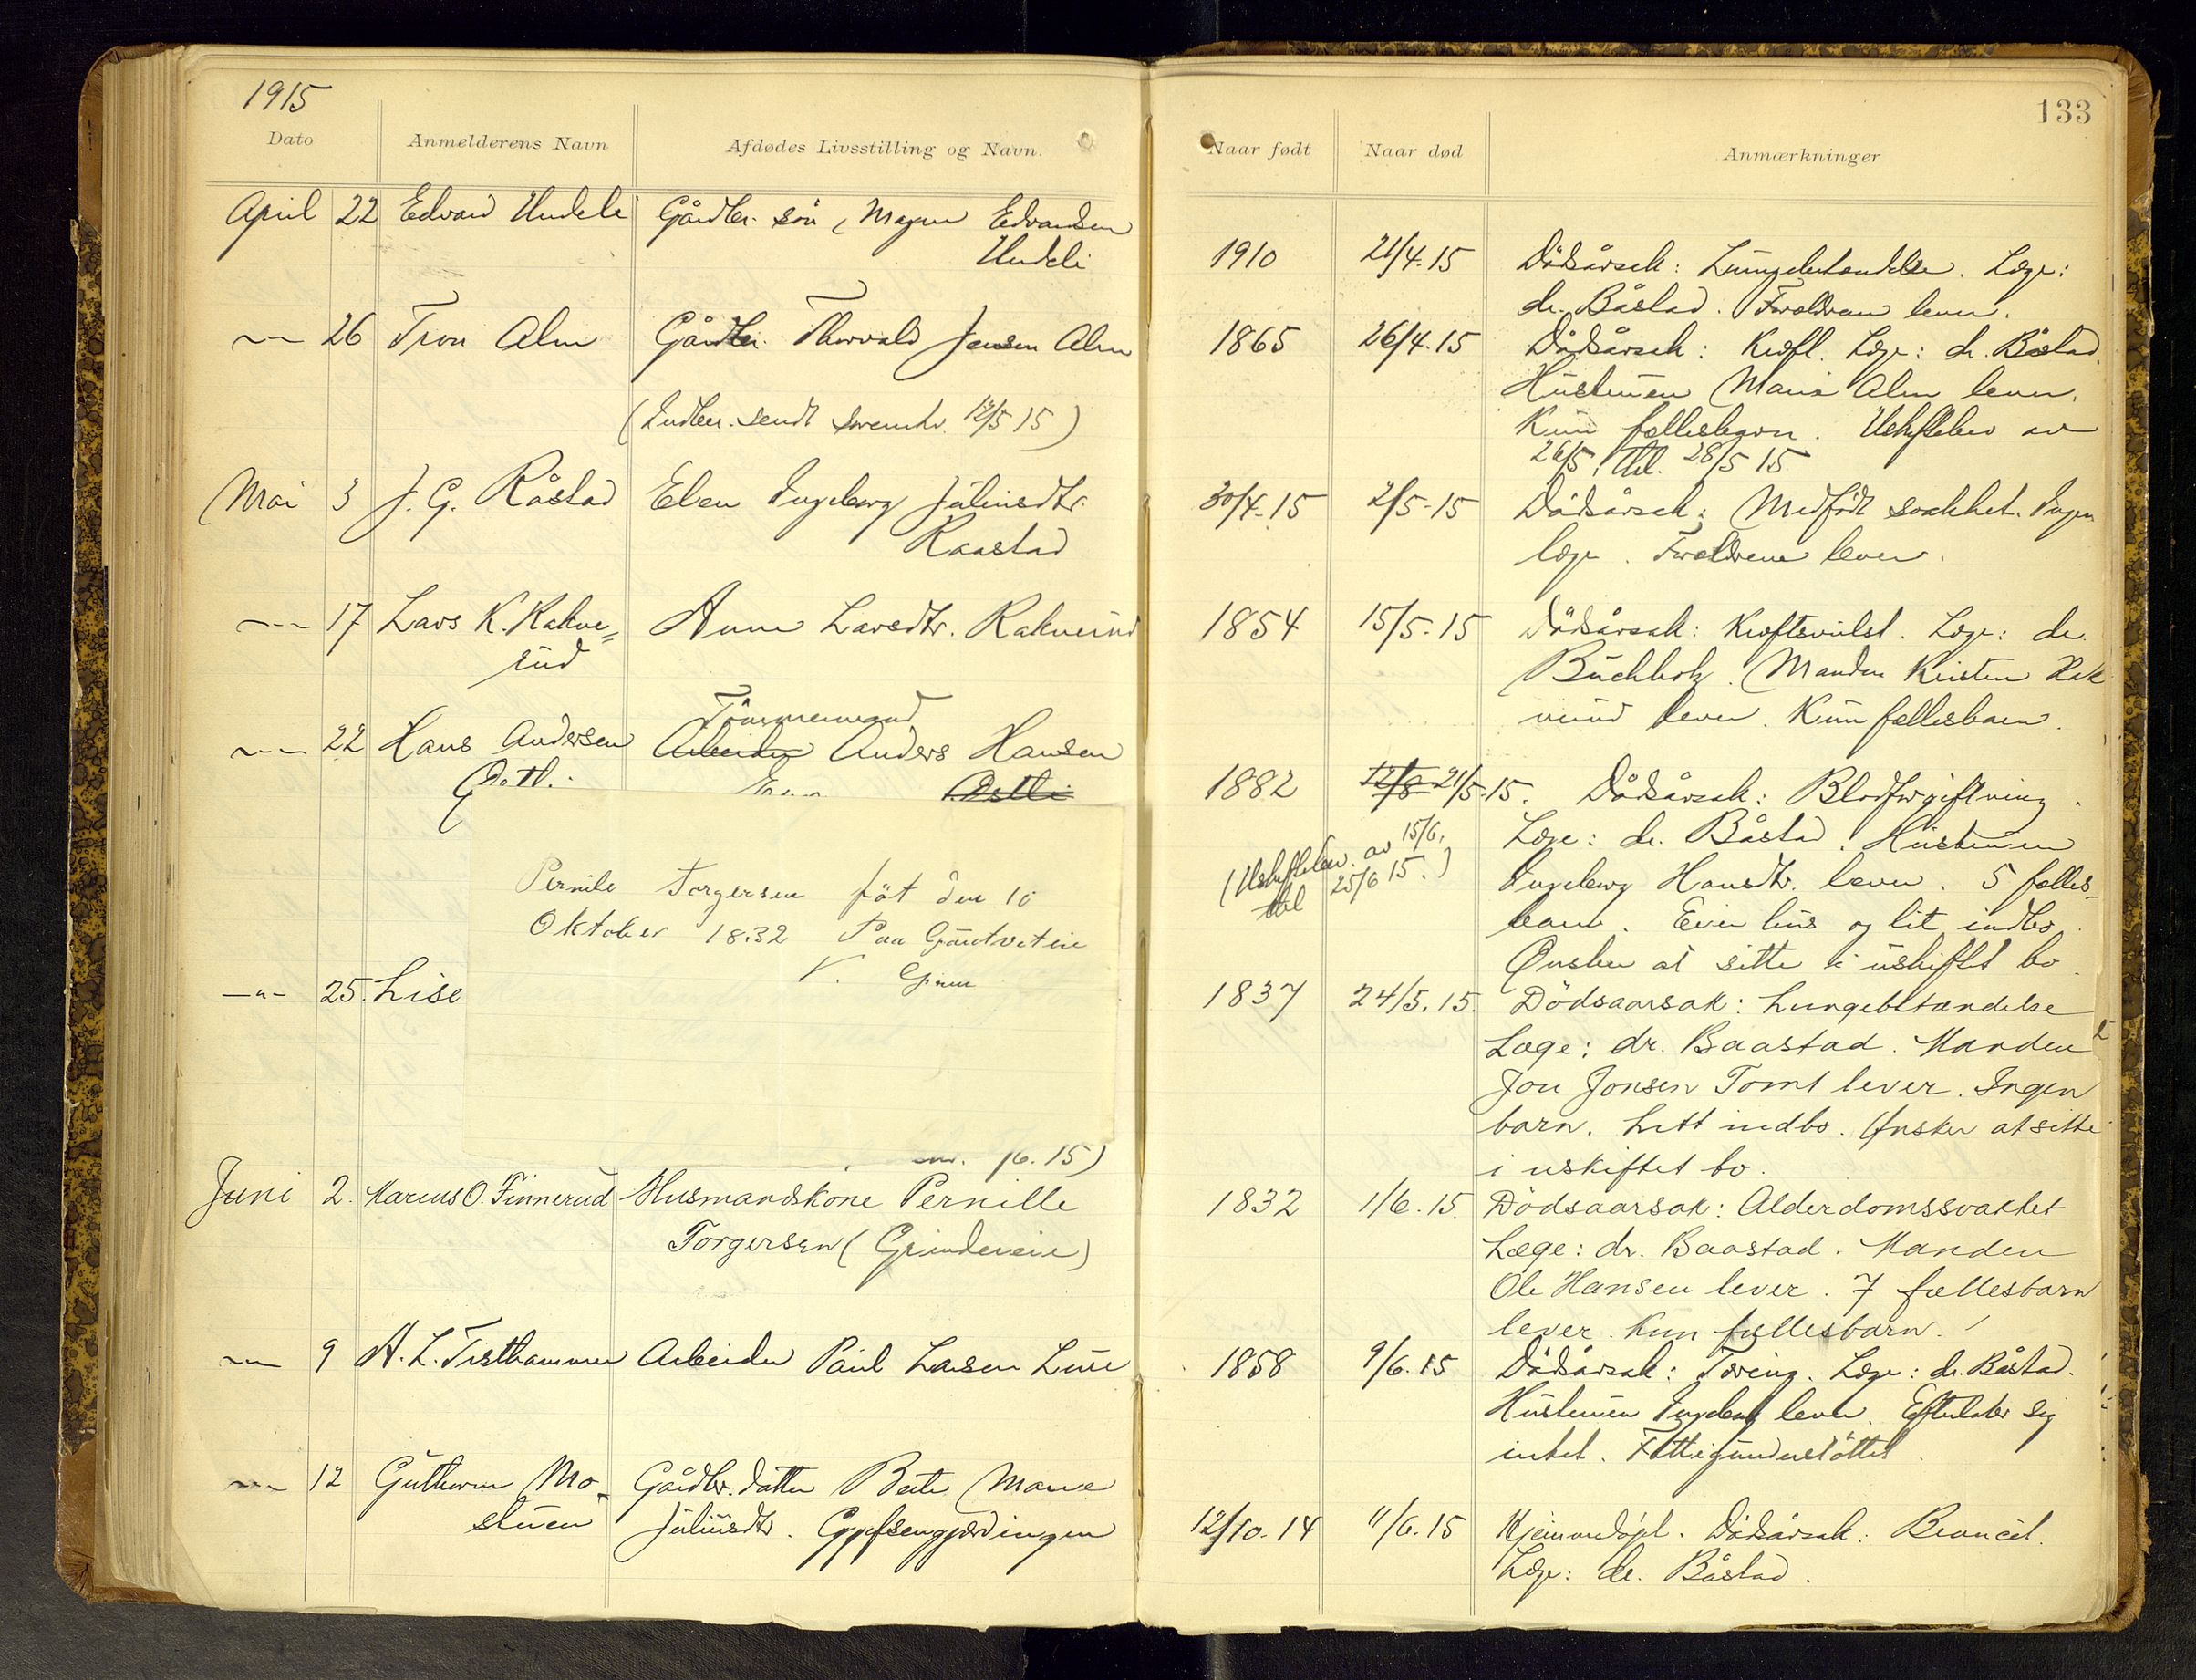 1915
133
Dato
Anmelderens Navn
Afdødes Livsstilling og Navn.
Naar født
Naar død
Anmærkninger
April 22 Edvard Undeli Gårdbr. sön Edvardsen
Undeli
1910 21/4.15 Dödsårsak: Lungebetændelse. Læge:
dr. Båstad. Forældrene lever.
-"- 26 Tron Alm Gårdbr. Thorvald Jensen Alm
1865 26/4.15 Dödsårsak: Kræft. Læge: dr. Båstad.
Hustruen Maria Alm lever.
(Indber. sendt 12/5 15)
Kun fællesbarn. Uskiftebev. av
26/5, tål. 28/5 15
Mai 3 J. G. Råstad Elen Ingeborg Juliusdtr.
Raastad
30/4-15 2/5-15 Dödsårsak: Medfödt svakhet. Ingen
læge. Forældrene lever.
-"- 17 Lars K. Rakne=
rud
Anne Larsdtr. Raknerud
1854 15/5-15 Dödsårsak: Kræftsvulst. Læge: dr.
Buchholz. Manden Kristen Rak
nerud lever. Kun fællesbarn.
Tömmermand
-"- 22 Hans Andersen Arbeider Anders Hansen
Østli Østli
1882 12/8 21/5-15. Dödsårsak: Blodforgiftning.
Læge: dr. Båstad. Hustruen
(Uskiftebev. av 15/6,
tål 25/6 15.)
Ingeborg Hansdtr. lever. 5 fælles-
barn. Eier hus og lit indbo.
Ønsker at sitte i uskiftet bo.
Pernile Torgersen föt den 10
Oktober 1832 Paa
V.
-"- 25. Lise
1837 24/5.15. Dödsaarsak: Lungebetændelse
Læge: dr. Baastad. Manden
Jon Jonsen Tomt lever. Ingen
barn. Litt indbo. Ønsker at sitte
i uskiftet bo.
/6.15)
Juni 2. Marius O. Finnerud Husmandskone Pernille
Torgersen (Grindereie)
1832 1/6.15. Dödsaarsak: Alderdomssvakhet
Læge: dr. Baastad. Manden
Ole Hansen lever. 7 fællesbarn
lever. Kun fællesbarn.
-"- 9 A. L. Tisthammer Arbeider Paul Larsen Lure
1858 9/6.15 Dödsårsak: Tæring. Læge: dr. Båstad.
Hustruen Ingeborg lever. Efterlater sig
intet. Fattigunderstöttet.
-"- 12 Guthorm Mo-
stuen
Gårdbr. datter Berte Marie
Juliusdtr.
12/10.14 11/6.15 Hjemmedöpt. Dödsårsak: Broncit.
Læge: dr. Båstad.